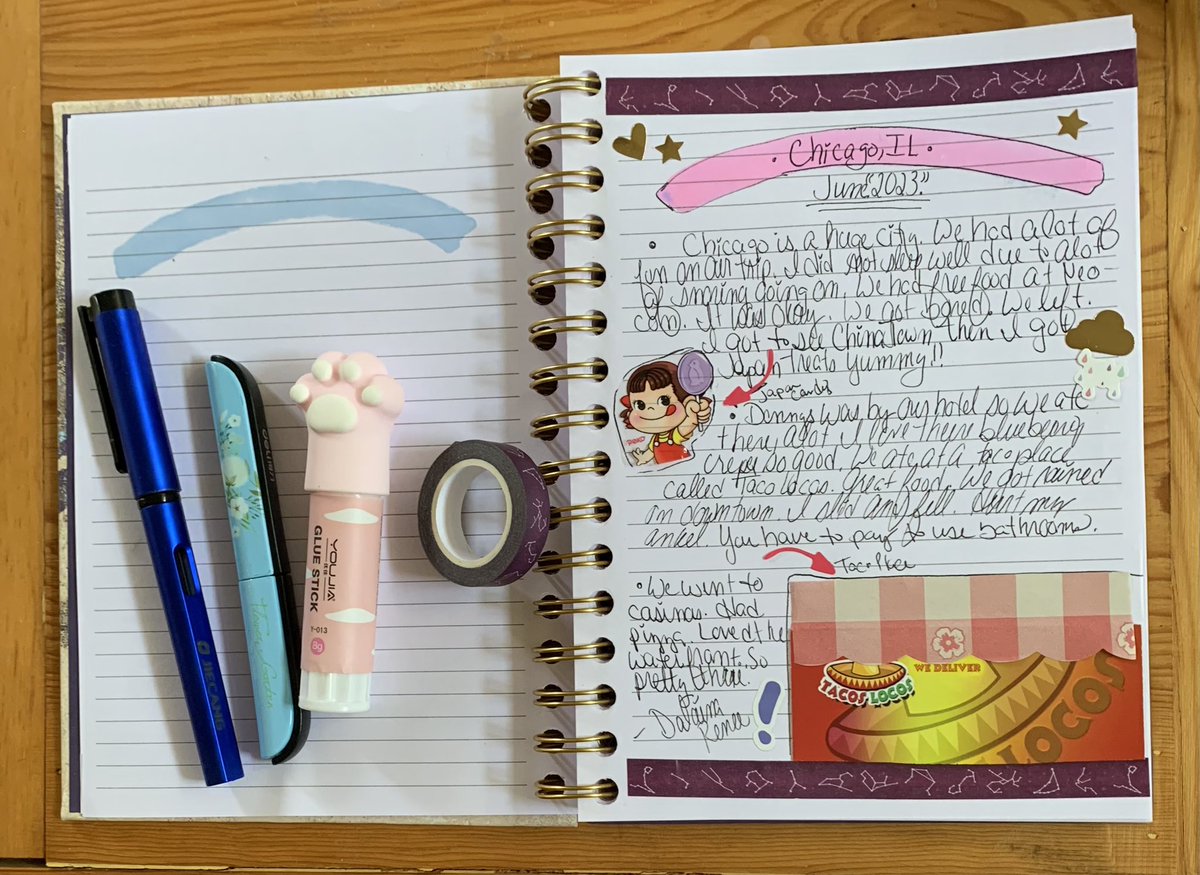 · Chicago, IL ·
June "2023"
• Chicago is a huge city. We had alot of
fun on our trip. I did not sleep well due to alot
of snoring going on. We had free food at Neo-
con. It was okay. We got bored. We left.
I got to see Chinatown, then I got
Japan treats yummy!!
Japan Candy
• Dennys was by our hotel so we ate
there alot I love there blueberry
crepes so good. We ate at a taco place
called Taco Locos. Great food. We got rained
on downtown. I slid and fell. Hurt my
ankel. You have to pay to use bathrooms.
Taco Place
• We went to
casinos. Had
pizza. Loved the
waterfront. So
pretty there.
Renee
!
PEKO
WE DELIVER
TACOS LOCOS
LOCOS
JIELANG
YOUJIA
GLUE STICK
Y-013
8g